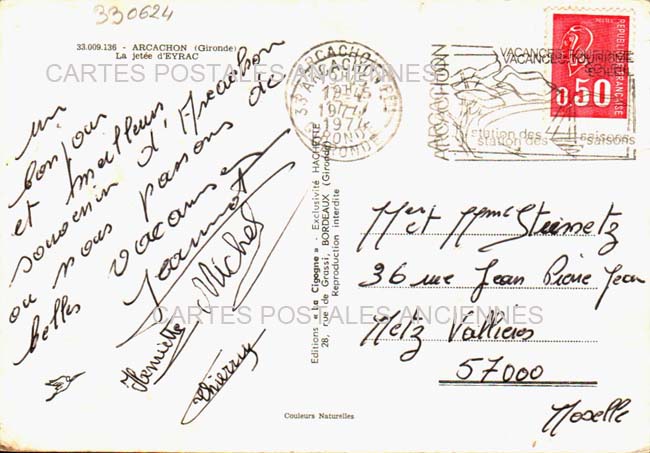 330624
33.009.136 - ARCACHON (Gironde)
La jetée d'EYRAC
CARTES POSTALES ANCIENNES
un
bonjour
et meilleurs
souvenirs d'Arcachon
ou nous passons de
belles vacances
Jeannot
Michel
Henriette
Thierry
Editions « La Cigogne » - Exclusivité HACHETTE
28, rue de Grassi, BORDEAUX (Gironde)
Reproduction interdite
Couleurs Naturelles
33 ARCACHON
GIRONDE
ARCACHON
VACANCES TOURISME
station des 4 saisons
RÉPUBLIQUE FRANÇAISE
0,50
Mr et Mme
36 rue Jean Pierre Jean
Metz Vallières
57000
Moselle
CARTES POSTALES ANCIENNES